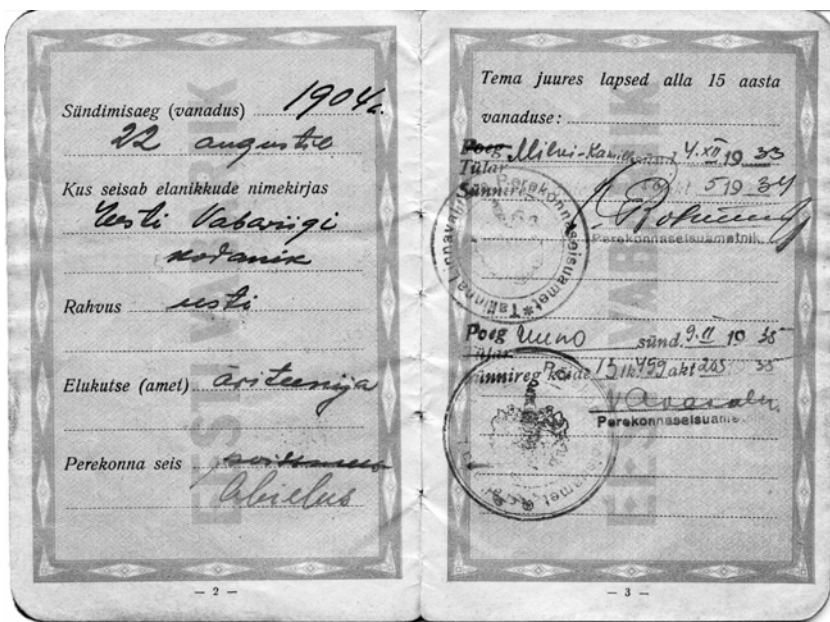 EESTI VABARIIK
Sündimisaeg (vanadus) 1904 a.
22 augustil
Kus seisab elanikkude nimekirjas
Eesti Vabariigi
kodanik
Rahvus eesti
Elukutse (amet) äriteenija
Perekonna seis poissmees
Abielus
— 2 —
EESTI VABARIIK
Tema juures lapsed alla 15 aasta
vanaduse:
Poeg Milvi- sünd 4.XII 19 33
Tütar
Sünnireg akt 5 19 34
Perekonnaseisuametnik
Tallinna Linnavalitsuse Perekonnaseisuamet
Poeg Uuno sünd. 9.II 19 35
Tütar
Sünnireg Köide 13 lk 459 akt 205 35
Perekonnaseisuametnik
— 3 —